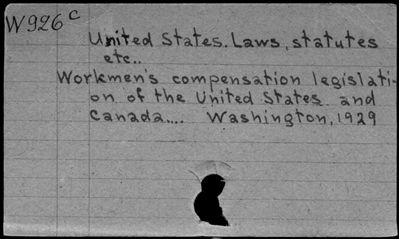 W926c
United States. Laws, statutes
etc..
Workmen's compensation legislati-
on of the United States and
Canada.... Washington, 1929